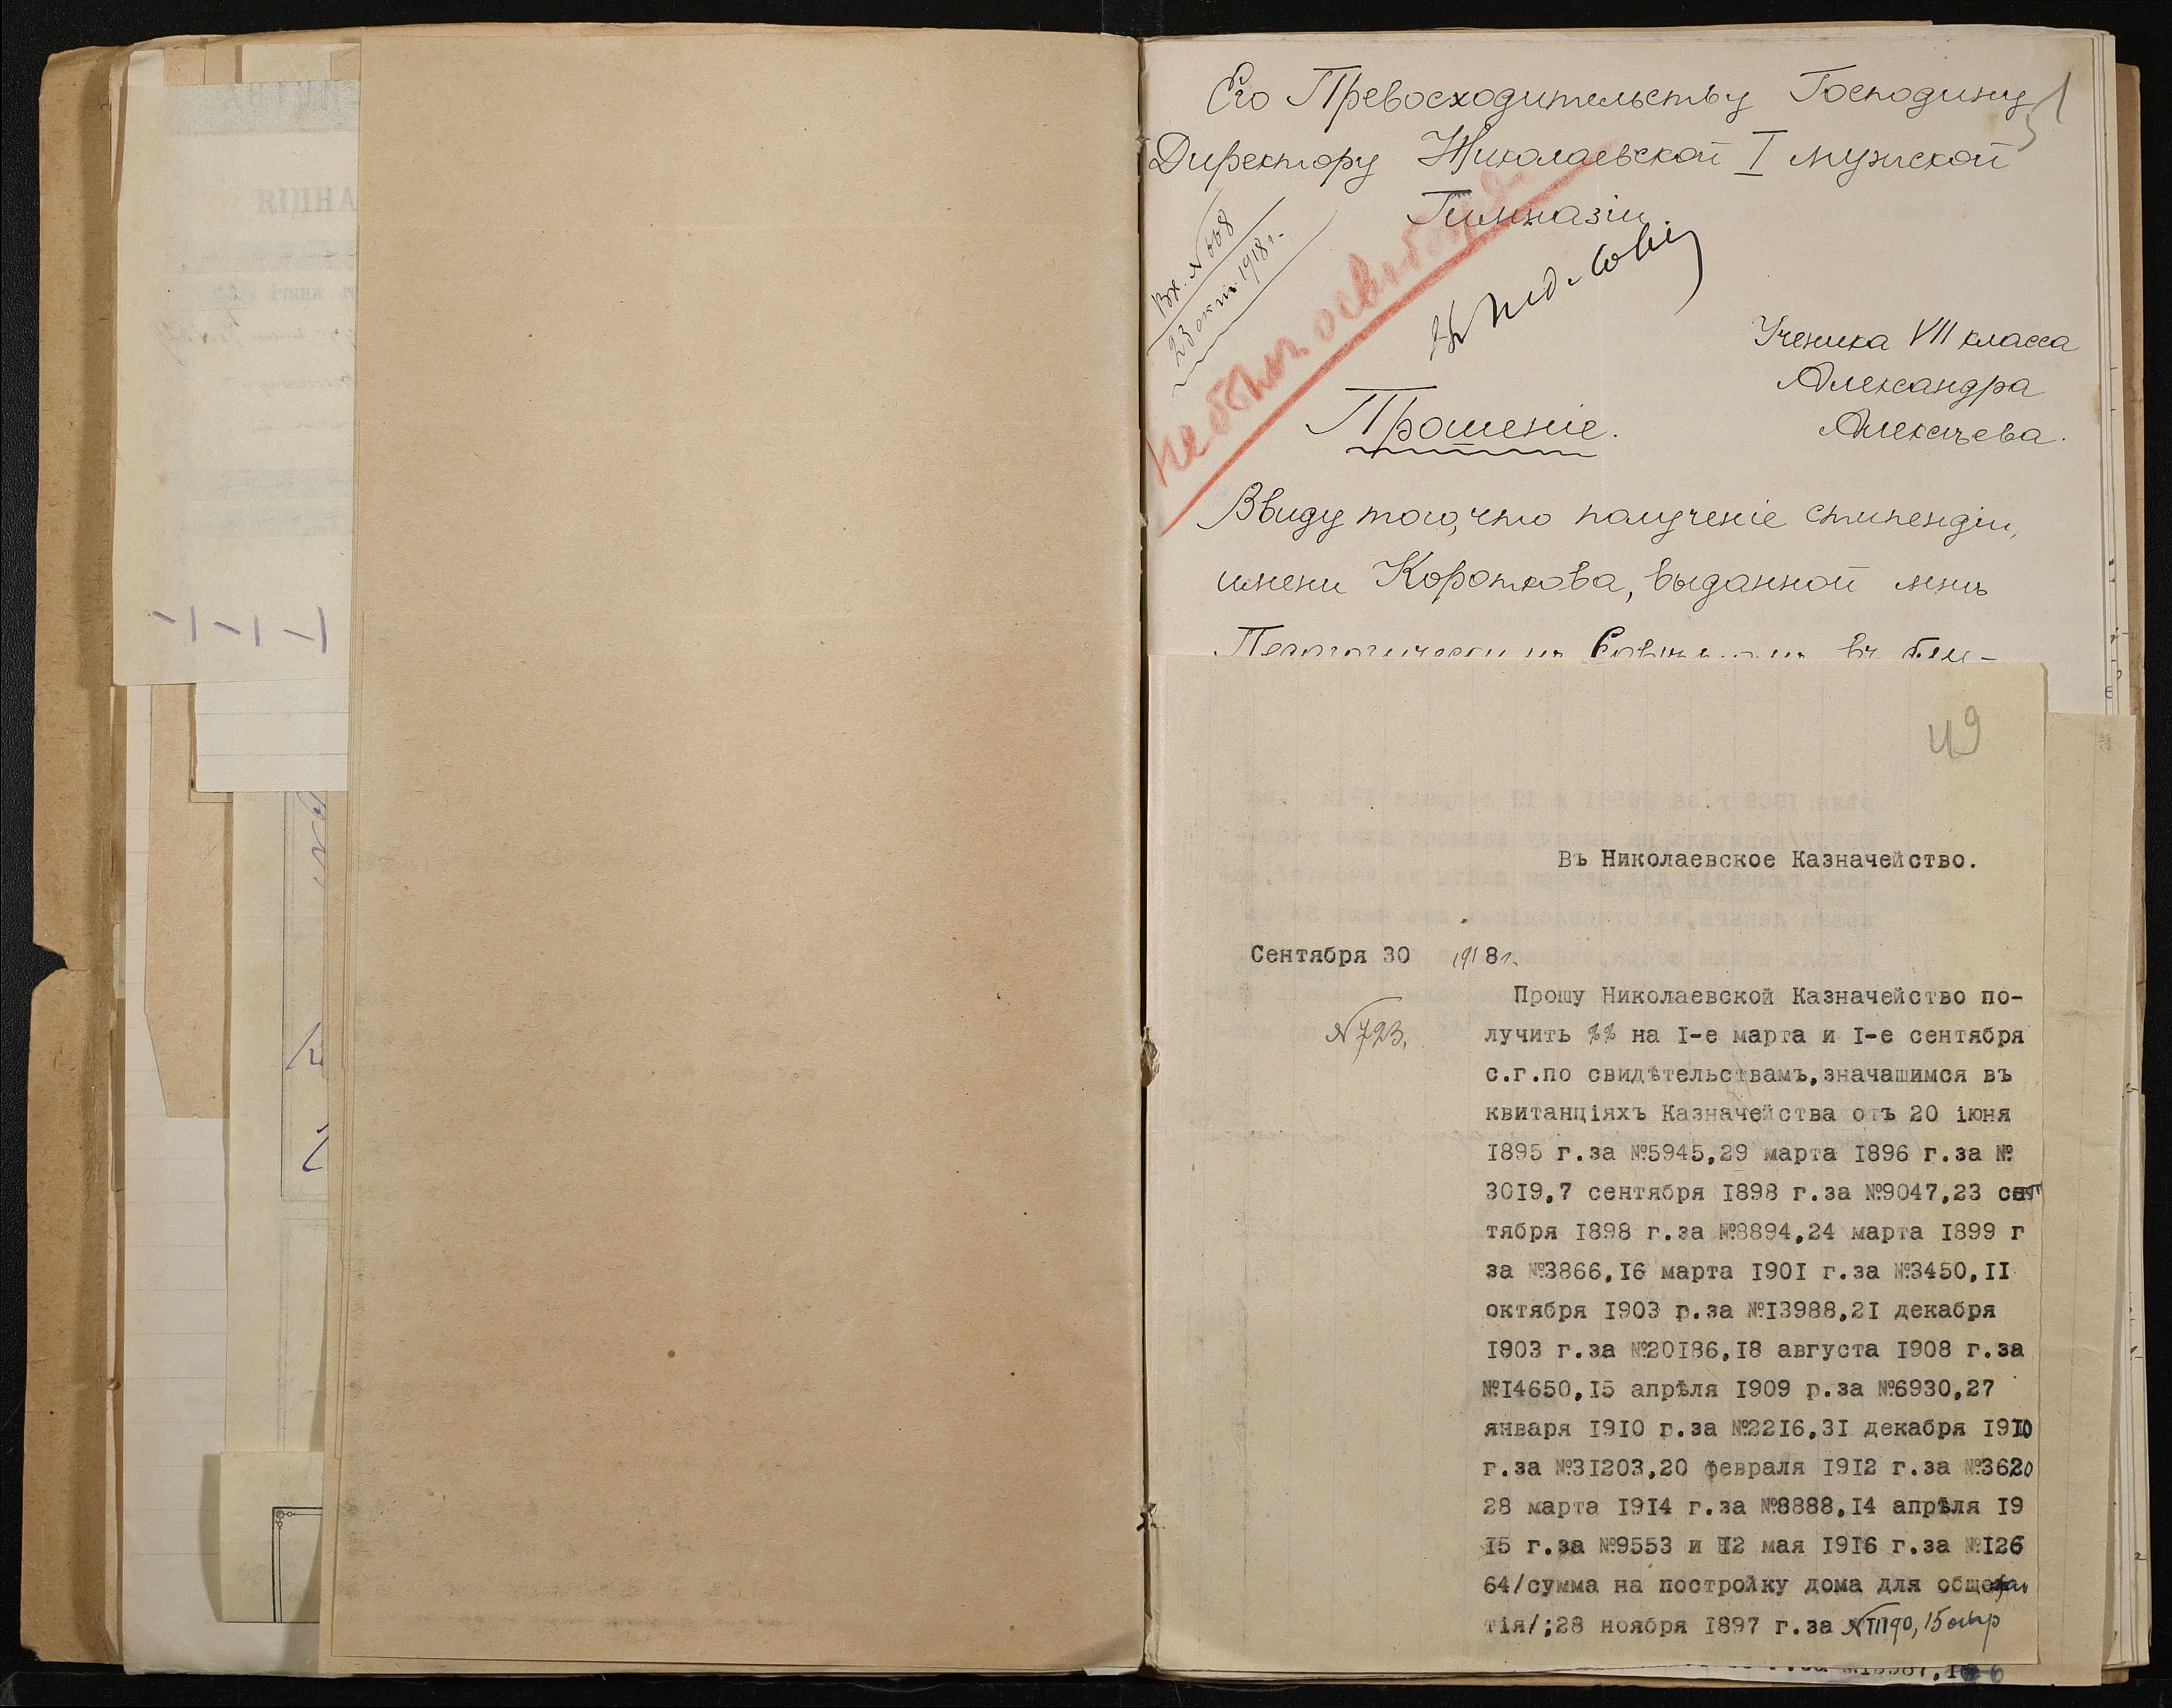 Его Превосходительству Господину
Директору Николаевской I мужской
Гимназіи.
Вх. № 668
23 окт. 1918 г.
Ученика VII класса
Александра
Алексѣева.
Прошеніе.
Ввиду того, что полученіе стипендіи,
имени Короткова, выданной мнѣ
Педагогическимъ Совѣтомъ въ
49
Въ Николаевское Казначейство.
Сентября 30 1918 г.
№723.
Прошу Николаевской Казначейство по-
лучить %% на I-е марта и I-е сентября
с.г.по свидѣтельствамъ,значашимся въ
квитанціяхъ Казначейства отъ 20 іюня
I895 г.за №5945,29 марта I896 г.за №
30I9,7 сентября I898 г.за №9047,23 сен
тября I898 г.за №8894,24 марта I899 г
за №3866,I6 марта I90I г.за №3450,II
октября I903 р.за №I3988,2I декабря
I903 г.за №20I86,I8 августа I908 г.за
№I4650,I5 апрѣля I909 р.за №6930,27
января I9I0 г.за №22I6,3I декабря I9I0
г.за №3I203,20 февраля I9I2 г.за №3620
28 марта I9I4 г.за №8888,I4 апрѣля I9
I5 г.за №9553 и I2 мая I9I6 г.за №I26
64/сумма на постройку дома для общежи
тія/;28 ноября I897 г.за №III90, 15